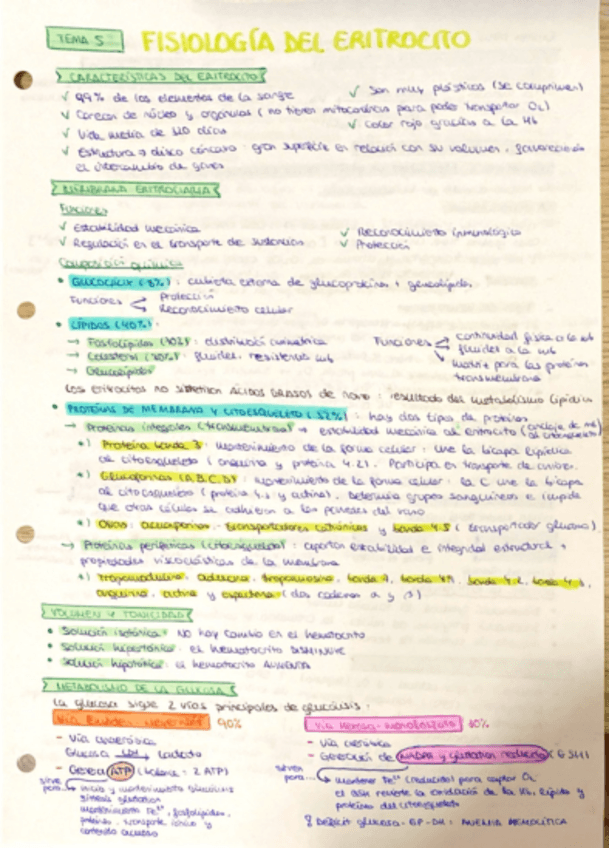 TEMA 5 FISIOLOGÍA DEL ERITROCITO
CARACTERÍSTICAS DEL ERITROCITO
✓ 99% de los elementos de la sangre
✓ Son muy plásticos (se comprimen)
✓ Carecen de núcleo y orgánulos (no tienen mitocondrias para poder transportar O2)
✓ Vida media de 120 días
✓ Color rojo gracias a la Hb
✓ Estructura → disco cóncavo: gran superficie en relación con su volumen, favoreciendo
el intercambio de gases
MEMBRANA ERITROCITARIA
Funciones
✓ Estabilidad mecánica
✓ Reconocimiento inmunológico
✓ Regulación en el transporte de sustancias
✓ Protección
Composición química
• GLUCOCÁLIX (8%): cubierta externa de glucoproteínas + glucolípidos.
Funciones
Protección
Reconocimiento celular
• LÍPIDOS (40%):
→ Fosfolípidos: distribución asimétrica
→ Colesterol: fluidez, resistencia mb
→ Glucolípidos
Funciones
continuidad física a la mb
fluidez a la mb
matriz para las proteínas
transmembrana
Los eritrocitos no sintetizan ÁCIDOS GRASOS de novo: resultado del metabolismo lipídico
• PROTEÍNAS DE MEMBRANA Y CITOESQUELETO (52%): hay dos tipos de proteínas
→ Proteínas integrales (transmembrana) → estabilidad mecánica al eritrocito
•) Proteína banda 3: mantenimiento de la forma celular: une la bicapa lipídica
al citoesqueleto (anquirina y proteína 4.2). Participa en transporte de aniones.
•) Glucoforinas (A, B, C, D): mantenimiento de la forma celular: la C une la bicapa
al citoesqueleto (proteína 4.1 y actina). Determina grupos sanguíneos e impide
que otras células se adhieran a las paredes del vaso
•) Otras: acuaporinas, transportadores catiónicos y banda 4.5 (transportador glucosa).
→ Proteínas periféricas (citoesqueleto): aportan estabilidad e integridad estructural +
propiedades viscoelásticas de la membrana
•) tropomodulina, aducina, tropomiosina, banda 7, banda 4.9, banda 4.2, banda 4.1,
anquirina, actina y espectrina (dos cadenas α y β)
VOLUMEN Y TONICIDAD
• Solución isotónica: NO hay cambio en el hematocrito
• Solución hipertónica: el hematocrito DISMINUYE
• Solución hipotónica: el hematocrito AUMENTA
METABOLISMO DE LA GLUCOSA
La glucosa sigue 2 vías principales de glucólisis:
Vía Embden-Meyerhof 90%
- Vía anaeróbica
Glucosa → lactato
- Genera ATP (balance: 2 ATP)
sirve
para
inicio y mantenimiento glucólisis
síntesis glutatión
mantenimiento Fe2+, fosfolípidos,
proteínas, transporte iónico y
contenido acuoso
Vía Hexosa-monofosfato 10%
- Vía aeróbica
- Generación de NADPH y glutatión reducido (GSH)
sirven
para...
mantener Fe2+ (reducido) para captar O2
el GSH revierte la oxidación de la Hb, lípidos y
proteínas del citoesqueleto
Déficit glucosa-6P-DH: ANEMIA HEMOLÍTICA